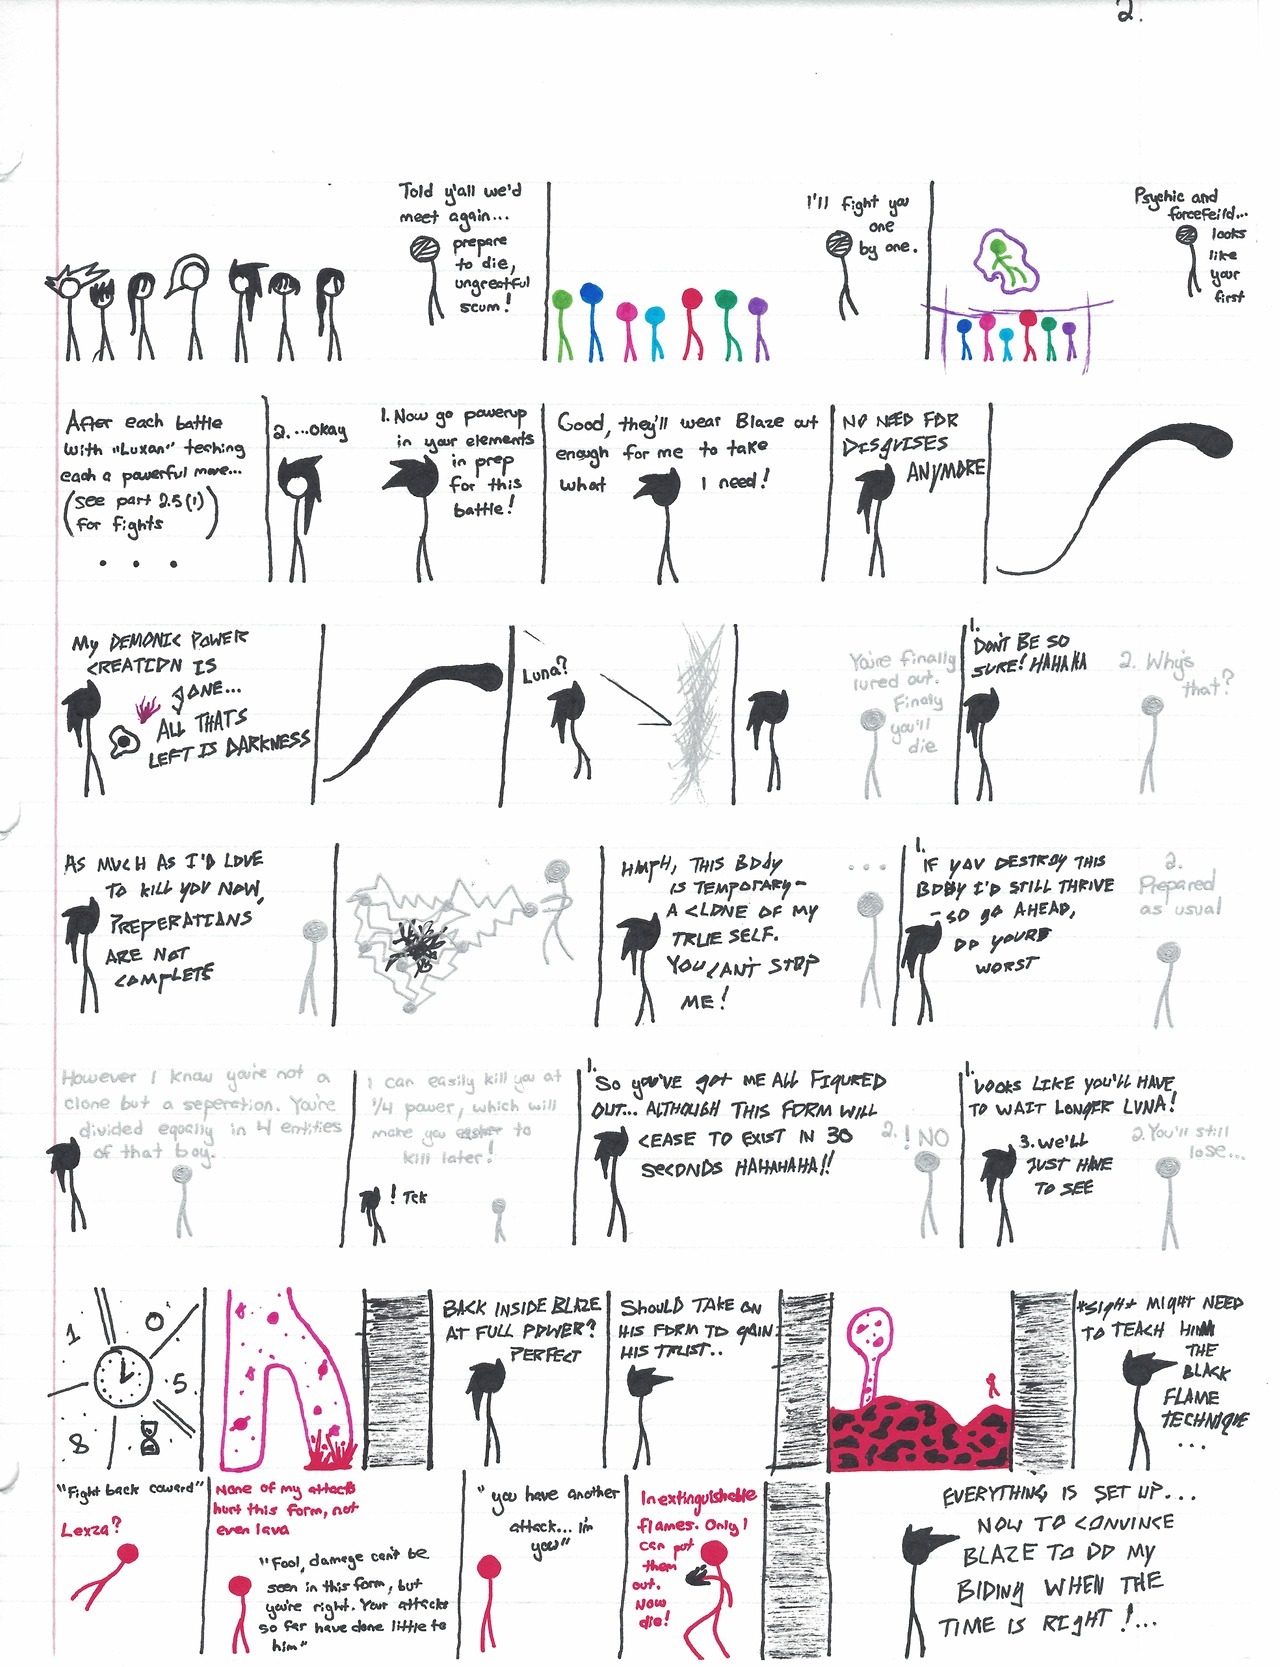 2.
Told y'all we'd
meet again...
prepare
to die,
ungreatful
scum!
I'll fight you
one
by one.
Psychic and
forcefeild...
looks
like
your
first
After each battle
with "Luxan" teching
each a powerful move...
(see part 2.5(1)
for fights)
...
2. ...okay
1. Now go powerup
in your elements
in prep
for this
battle!
Good, they'll wear Blaze out
enough for me to take
what I need!
NO NEED FOR
DISGUISES
ANYMORE
My DEMONIC POWER
CREATION IS
GONE...
ALL THATS
LEFT IS DARKNESS
Luna?
You're finally
lured out.
Finaly
you'll
die
1.
DON'T BE SO
SURE! HAHAHA
2. Why's
that?
AS MUCH AS I'D LOVE
TO KILL YOU NOW,
PREPERATIONS
ARE NOT
COMPLETE
HMPH, THIS BODY
IS TEMPORARY-
A CLONE OF MY
TRUE SELF.
YOU CAN'T STOP
ME!
...
1.
IF YOU DESTROY THIS
BODY I'D STILL THRIVE
-SO GO AHEAD,
DO YOUR
WORST
2.
Prepared
as usual
However I know you're not a
clone but a seperation. You're
divided equally in 4 entities
of that boy.
I can easily kill you at
1/4 power, which will
make you easier to
kill later!
! Tck
1.
SO you've got ME ALL FIGURED
OUT... ALTHOUGH THIS FORM WILL
CEASE TO EXIST IN 30
SECONDS HAHAHAHA!!
2. ! NO
1.
LOOKS LIKE YOU'LL HAVE
TO WAIT LONGER LUNA!
2. You'll still
lose...
3. WE'LL
JUST HAVE
TO SEE
1
5
8
BACK INSIDE BLAZE
AT FULL POWER?
PERFECT
SHOULD TAKE ON
HIS FORM TO GAIN
HIS TRUST..
*SIGH* MIGHT NEED
TO TEACH HIM
THE
BLACK
FLAME
TECHNIQUE
...
"Fight back coward"
Lexza?
None of my attacks
hurt this form, not
even lava
"Fool, damage can't be
seen in this form, but
you're right. Your attacks
so far have done little to
him"
"you have another
attack... I'm
you"
Inextinguishable
flames. Only I
can put
them
out.
Now
die!
EVERYTHING IS SET UP...
NOW TO CONVINCE
BLAZE TO DO MY
BIDING WHEN THE
TIME IS RIGHT!...